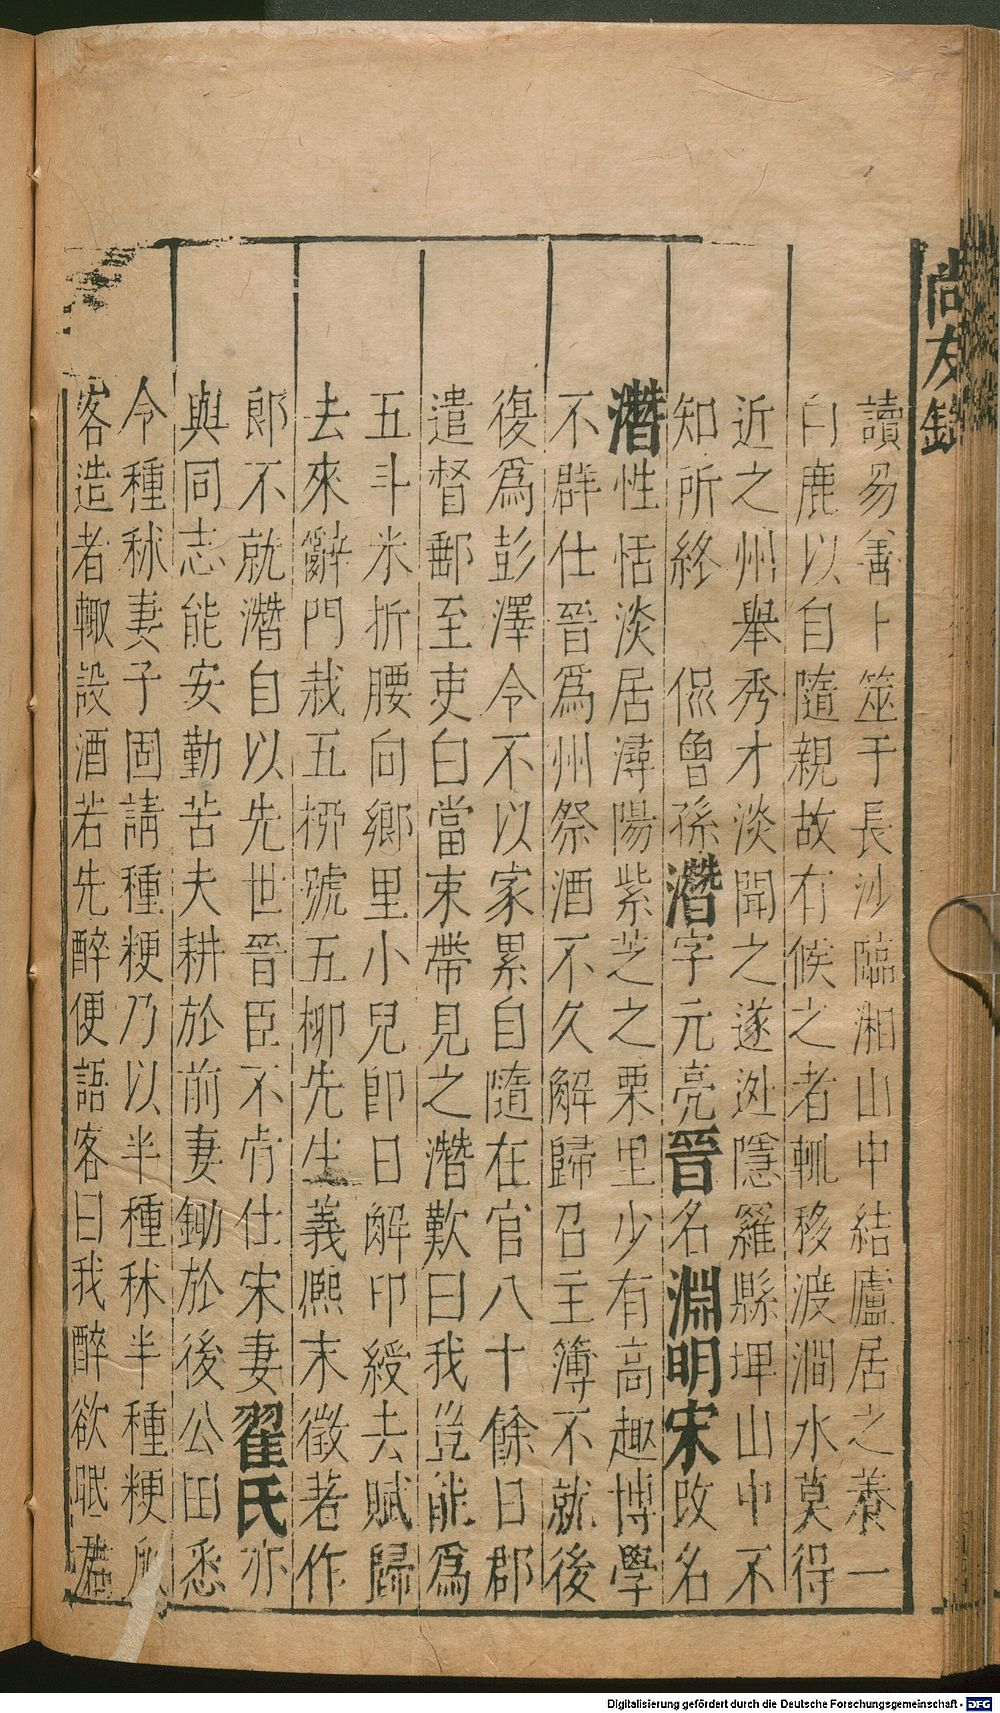 尚友錄
讀易善卜筮于長沙臨湘山中結廬居之養一
白鹿以自隨親故有候之者輒移渡澗水莫得
近之州舉秀才淡聞之遂逃隱羅縣埤山中不
知所終　侃曾孫潛字元亮晉名淵明宋改名
潛性恬淡居潯陽紫芝之栗里少有高趣博學
不群仕晉爲州祭酒不久解歸召主簿不就後
復爲彭澤令不以家累自隨在官八十餘日郡
遣督郵至吏白當束帶見之潛歎曰我豈能爲
五斗米折腰向鄉里小兒即日解印綬去賦歸
去來辭門栽五栁號五柳先生義熈末徵著作
郎不就潛自以先世晉臣不肯仕宋妻翟氏亦
與同志能安勤苦夫耕於前妻鋤於後公田悉
令種秫妻子固請種粳乃以半種秫半種粳
客造者輙設酒若先醉便語客曰我醉欲眠君
Digitalisierung gefördert durch die Deutsche Forschungsgemeinschaft - DFG